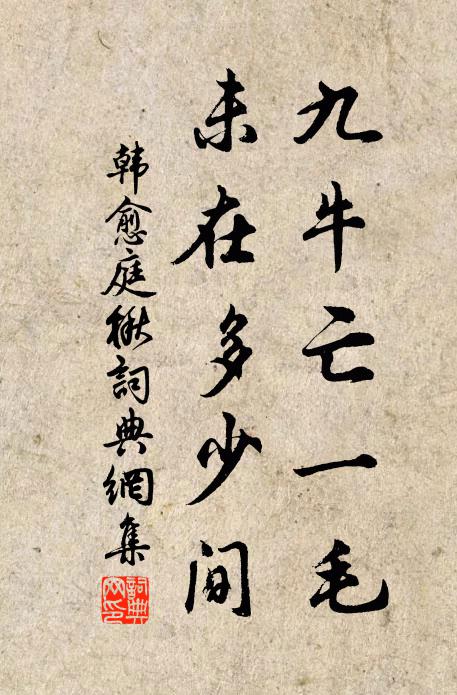 九牛亡一毛
未在多少间
韩愈庭楸詞典網集
詞典网印